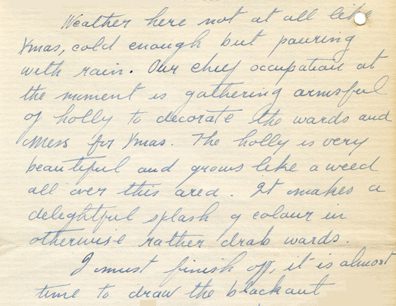 Weather here not at all like
Xmas, cold enough but pouring
with rain. Our chief occupation at
the moment is gathering armsful
of holly to decorate the wards and
Mess for Xmas. The holly is very
beautiful and grows like a weed
all over this area. It makes a
delightful splash of colour in
otherwise rather drab wards.
I must finish off, it is almost
time to draw the blackout